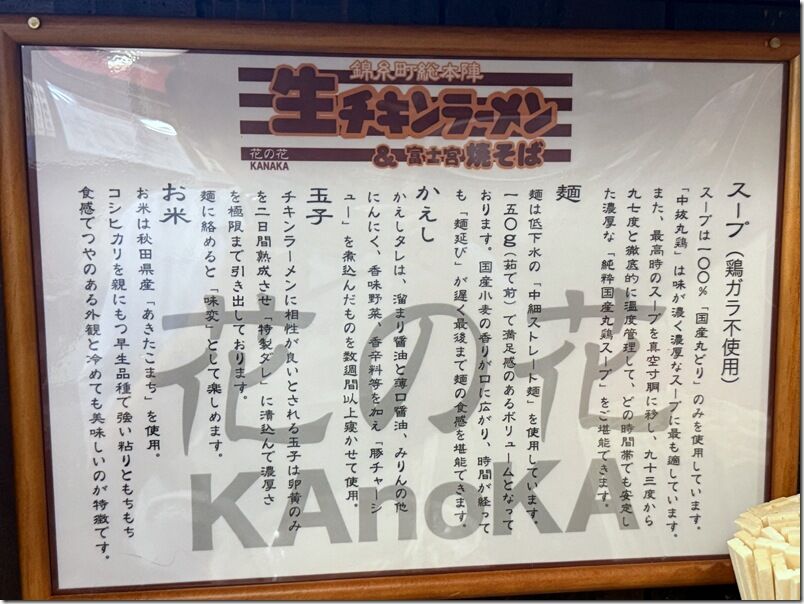 錦糸町総本陣
生チキンラーメン
花の花
KANAKA
& 富士宮焼そば
スープ（鶏ガラ不使用）
スープは一〇〇％「国産丸どり」のみを使用しています。
「中抜丸鶏」は味が濃く濃厚なスープに最も適しています。
また、最高時のスープを真空寸胴に移し、九十三度から
九七度と徹底的に温度管理して、どの時間帯でも安定し
た濃厚な「純粋国産丸鶏スープ」をご堪能できます。
麺
麺は低下水の「中細ストレート麺」を使用しています。
一五〇g（茹で前）で満足感のあるボリュームとなって
おります。国産小麦の香りが口に広がり、時間が経って
も「麺延び」が遅く最後まで麺の食感を堪能できます。
かえし
かえしタレは、溜まり醤油と薄口醤油、みりんの他
にんにく、香味野菜、香辛料等を加え「豚チャーシ
ュー」を煮込んだものを数週間以上寝かせて使用。
玉子
チキンラーメンに相性が良いとされる玉子は卵黄のみ
を二日間熟成させ「特製ダレ」に漬込んで濃厚さ
を極限まで引き出しております。
麺に絡めると「味変」として楽しめます。
お米
お米は秋田県産「あきたこまち」を使用。
コシヒカリを親にもつ早生品種で強い粘りともちもち
食感でつやのある外観と冷めても美味しいのが特徴です。
花の花
KAnoKA